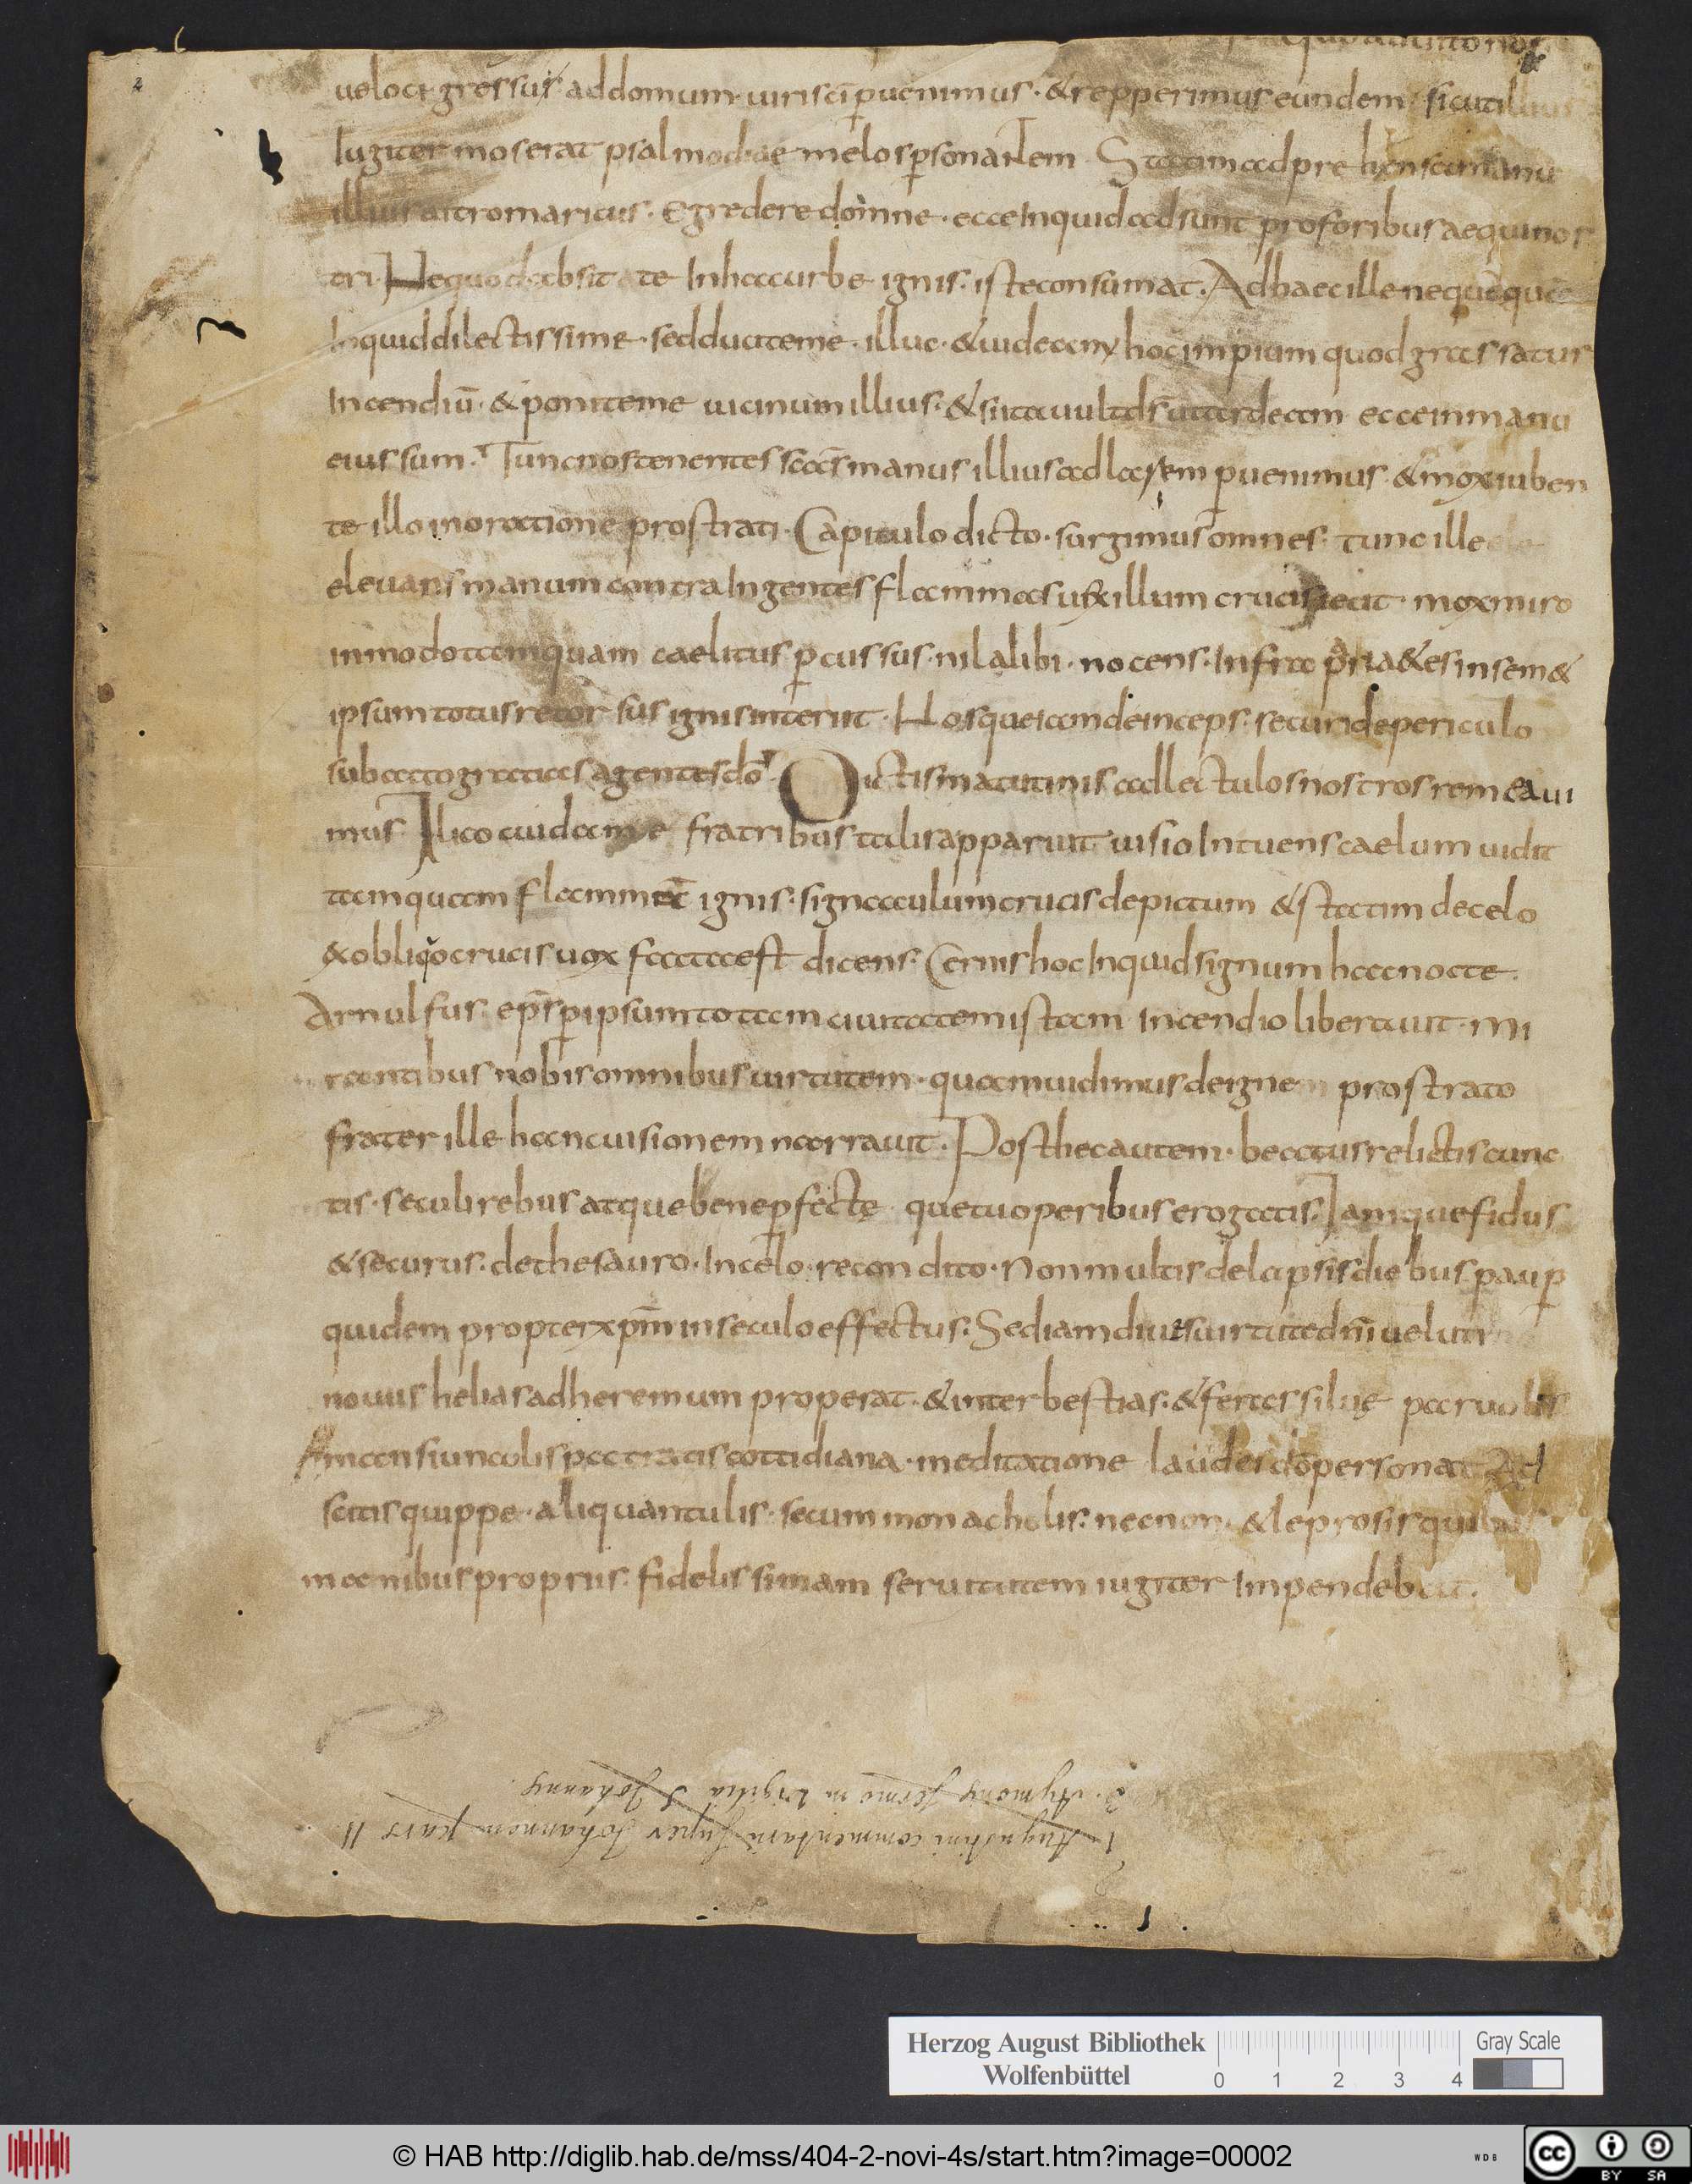 ueloci gressu ad domum uiri sc̄i ꝑuenimus · & repperimus eundem sicut illius
Iugiter mos erat psalmodiae melos ꝑsonantem Statim adprehensa manu
illius ait romaricus · Egredere domne · ecce Inquid adsunt pro foribus aequi nos
tri · Ne quod absit te In hac urbe ignis · iste consumat · Ad haec ille nequaquā
Inquid dilectissime · sed ducite me · illuc · & uideam hoc impium quod grassatur
Incendiū · & ponite me uicinum illius · & si ita uult d̄s ut ardeam ecce in manu
eius sum · Tunc nos tenentes sacras manus illius ad locem ꝑuenimus · & mox iuben
te illo in oratione prostrati · Capitulo dicto · surgimus omnes · tunc ille
eleuans manum contra Ingentes flammas uexillum crucis iecit · mox miro
inmodo tamquam caelitus ꝑcussus · nil alibi · nocens · Infra pria & es in sem&
ipsum totus retorsus ignis interiit · Hosque iam deinceps · securi de periculo
sub acto gratias agentes dō · Dictis matutinis ad lectulos nostros remeaui
mus · Ilico cuidam e fratribus talis apparuit uisio Intuens caelum uidit
tamquam flammae ignis · signaculum crucis depictum & statim de celo
& obliquo crucis uox facta est dicens · Cernis hoc Inquid signum hac nocte ·
Arnulfus · ep̄s ꝑ ipsum totam ciuitatem istam Incendio liberauit · Mi
rantibus nobis omnibus uirtutem · quam uidimus de igne prostrato
frater ille hanc uisionem narrauit · Post hec autem · beatus relictis cunc
tis · seculi rebus atque bene ꝑfectę que tuoperibus erogatis · Iamque fidus
& securus · de thesauro · In celo · recondito · Non multis delapsis diebus pauꝑ
quidem propter xp̄m in seculo effectus · Sed iam diues uirtute dn̄i uelut
nouus helias ad heremum properat · & inter bestias · & feras siluę paruolis
mansiunculis patratis cottidiana · meditatione laudes dō personat Ad
scitis quippe · aliquantulis · secum monacholis · necnon · & leprosis quibus
manibus propriis · fidelissimam seruitutem iugiter Impendebat ·
1 Augustini commentarii super Johannem pars II
2. Aymonis sermo in vigilia S Johannis.
Herzog August Bibliothek
Wolfenbüttel
0 1 2 3 4
Gray Scale
© HAB http://diglib.hab.de/mss/404-2-novi-4s/start.htm?image=00002
WDB
cc BY SA